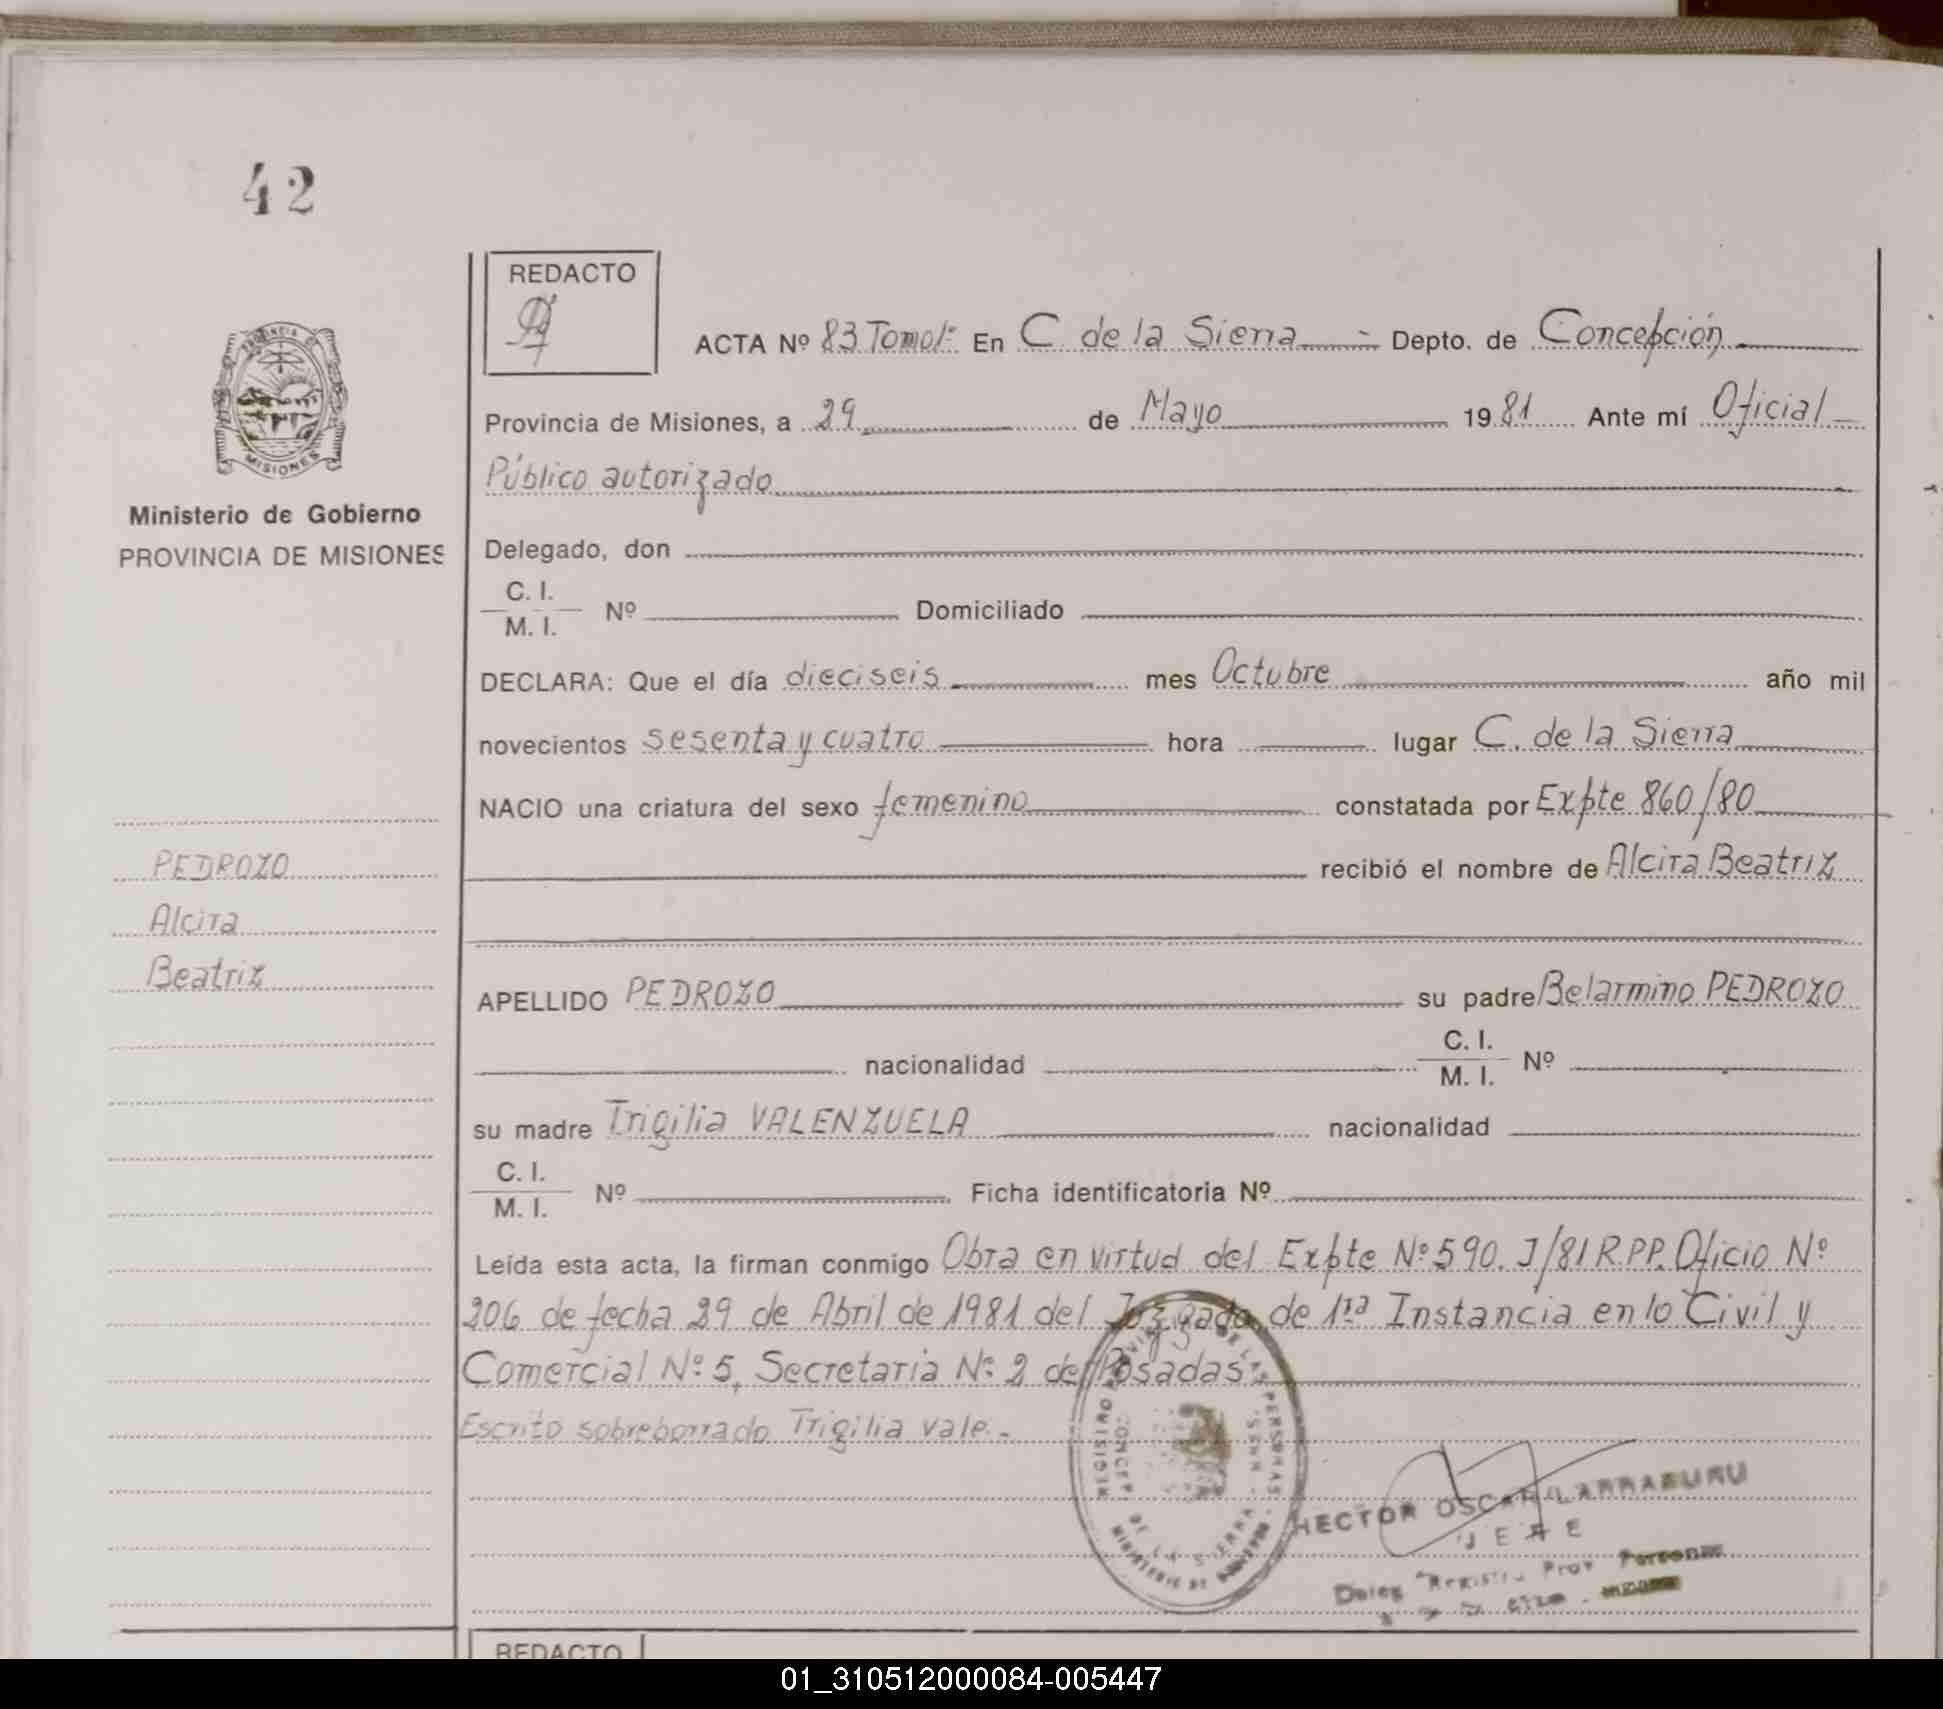 42
REDACTO
ACTA Nº 83 Tomo I- En C. de la Sierra - Depto. de Concepción
PROVINCIA
MISIONES
Provincia de Misiones, a 29 de Mayo 1981 Ante mí Oficial
Público autorizado
Ministerio de Gobierno
PROVINCIA DE MISIONES
Delegado, don
C. I.
M. I.
Nº Domiciliado
DECLARA: Que el día dieciseis mes Octubre año mil
novecientos sesenta y cuatro hora lugar C. de la Sierra
NACIO una criatura del sexo femenino constatada por Expte 860/80
recibió el nombre de Alcira Beatriz
PEDROZO
Alcira
Beatriz
APELLIDO PEDROZO su padre Belarmino PEDROZO
nacionalidad C. I.
M. I. Nº
su madre Trigilia VALENZUELA nacionalidad
C. I.
M. I.
Nº Ficha identificatoria Nº
Leída esta acta, la firman conmigo Obra en virtud del Expte Nº 590. J/81 R.PP. Oficio Nº
206 de fecha 29 de Abril de 1981 del Juzgado de 1ra Instancia en lo Civil y
Comercial Nº 5, Secretaria Nº 2 de Posadas.
Escrito sobreborrado Trigilia vale.-
REGISTRO PROVINCIAL DE LAS PERSONAS
DE LA SIERRA
MINISTERIO DE GOBIERNO
HECTOR OSCAR LARRABURU
JEFE
Deleg Registro Prov Personas
REDACTO
01_310512000084-005447